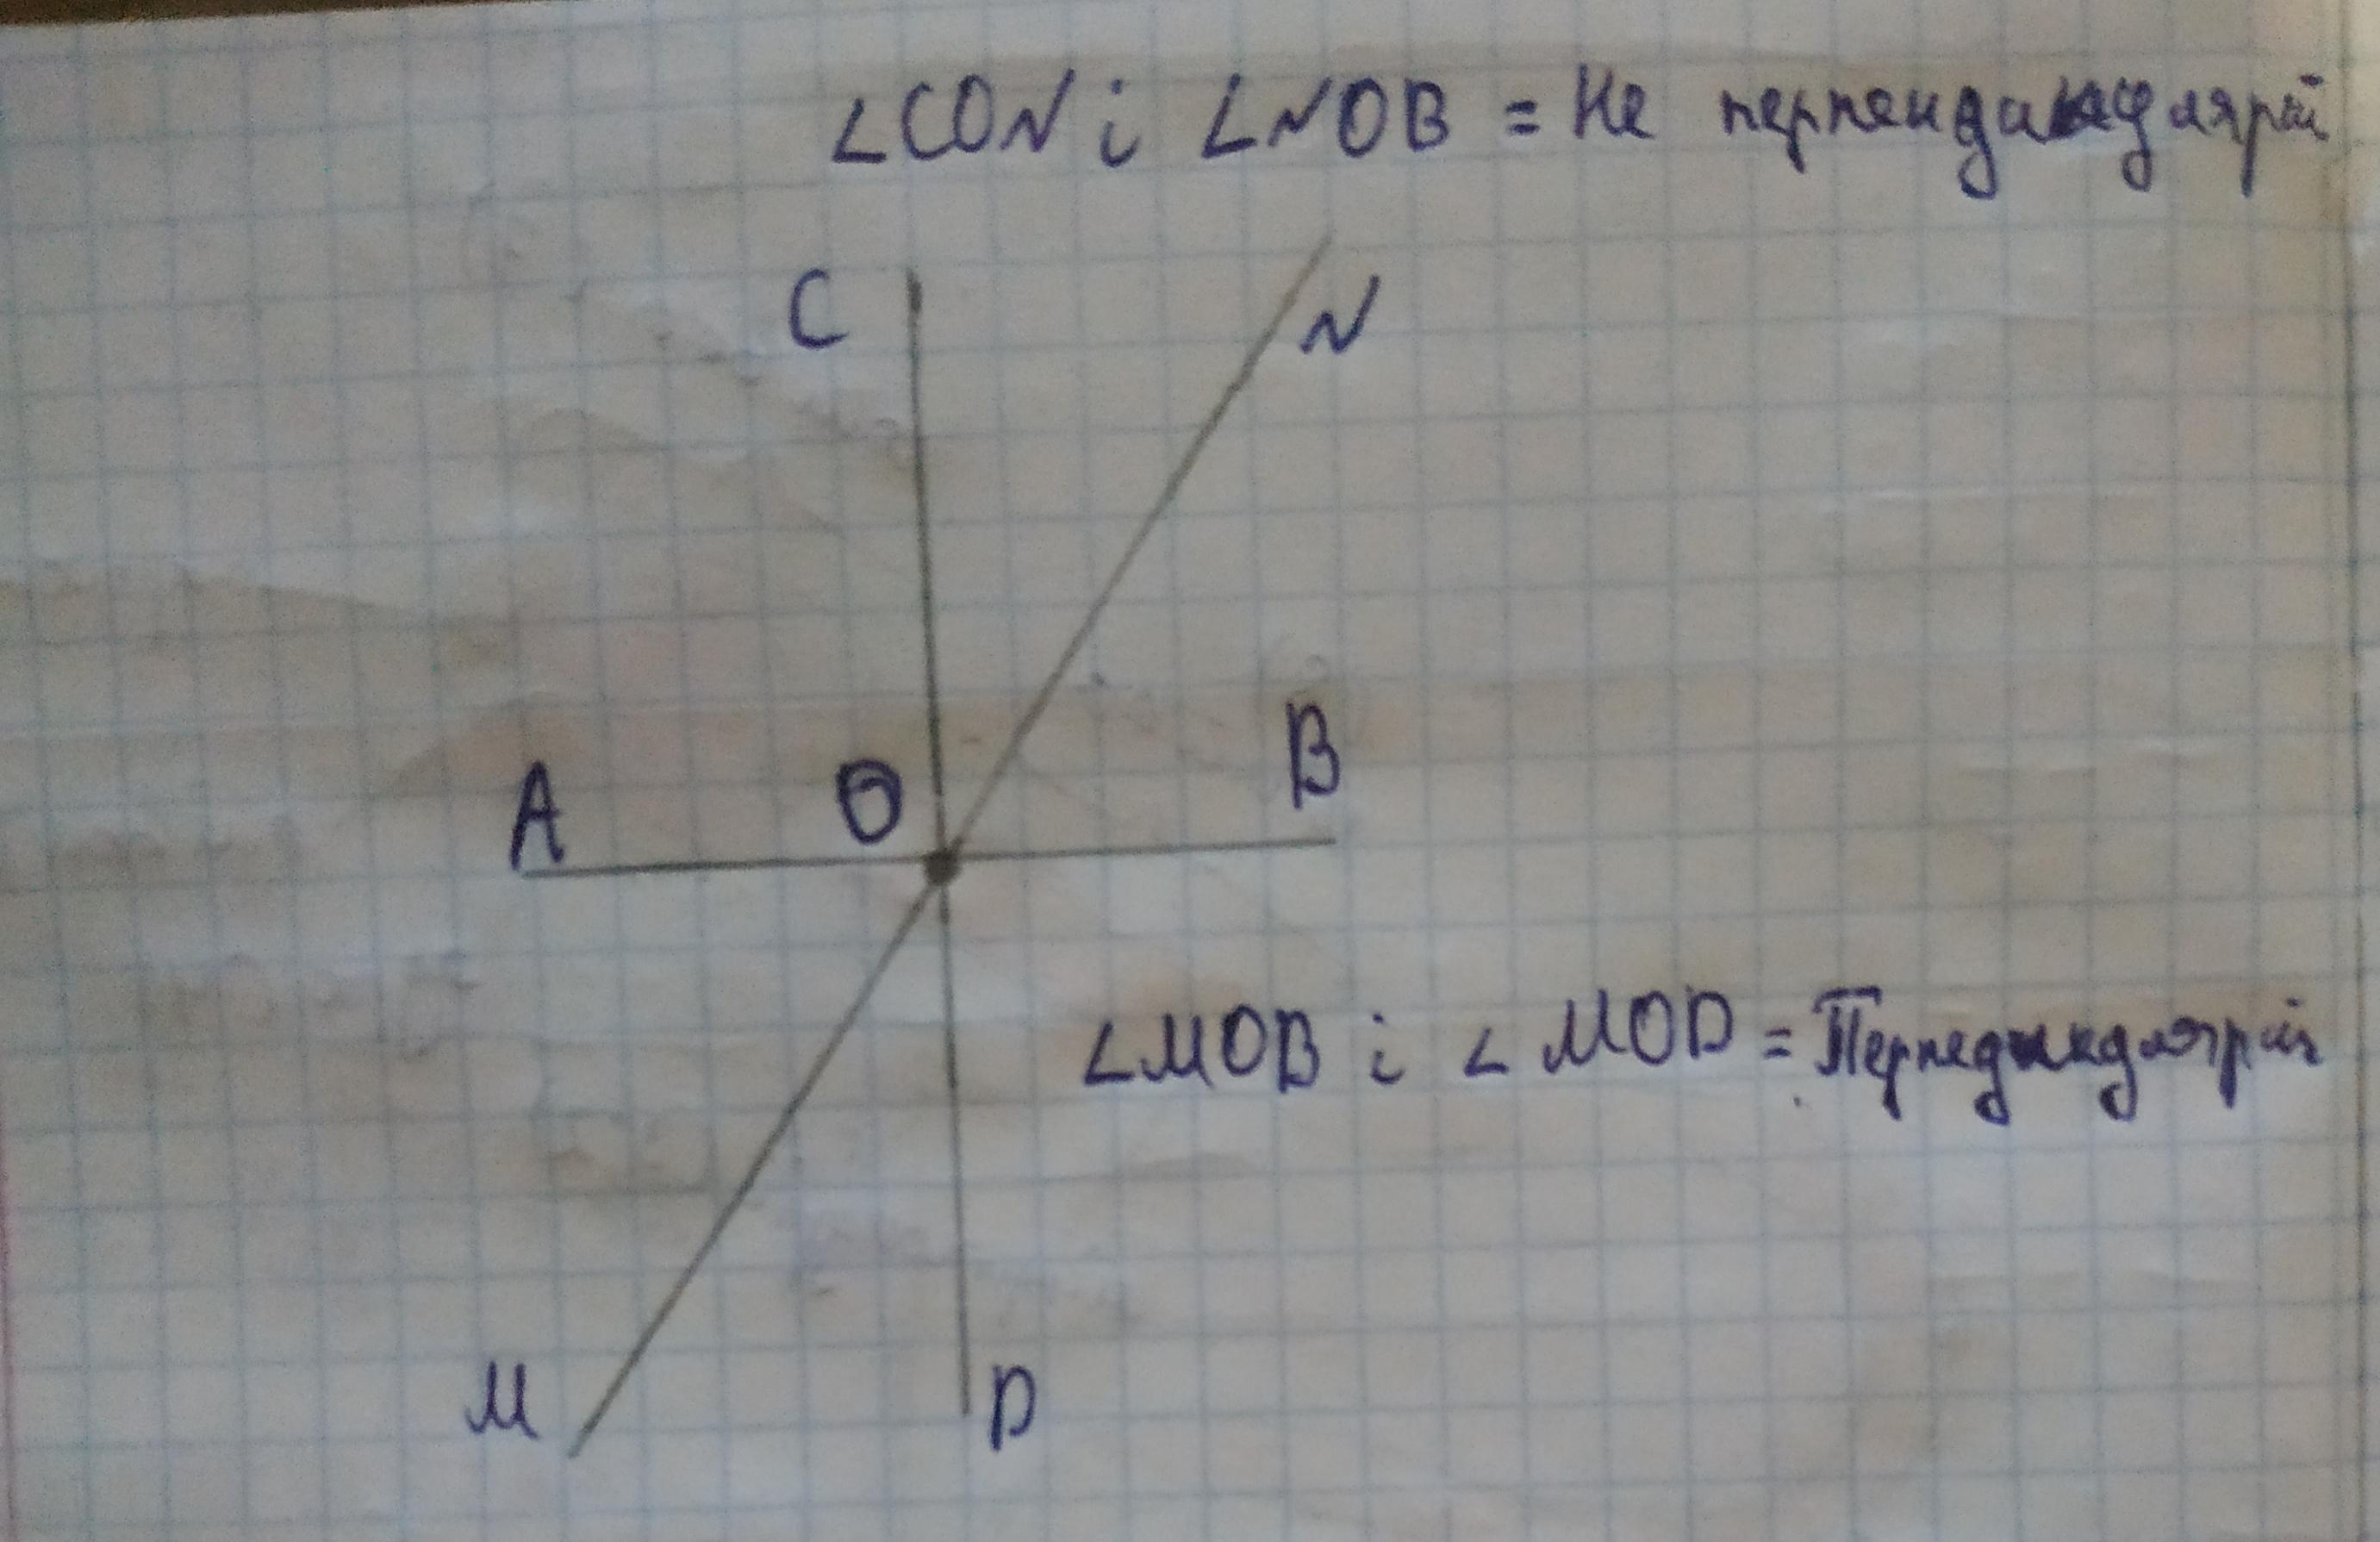 ∠CON і ∠NOB = Не перпендикулярні
C
N
A
O
B
∠MOB і ∠MOD = Перпедикдлярні
M
D